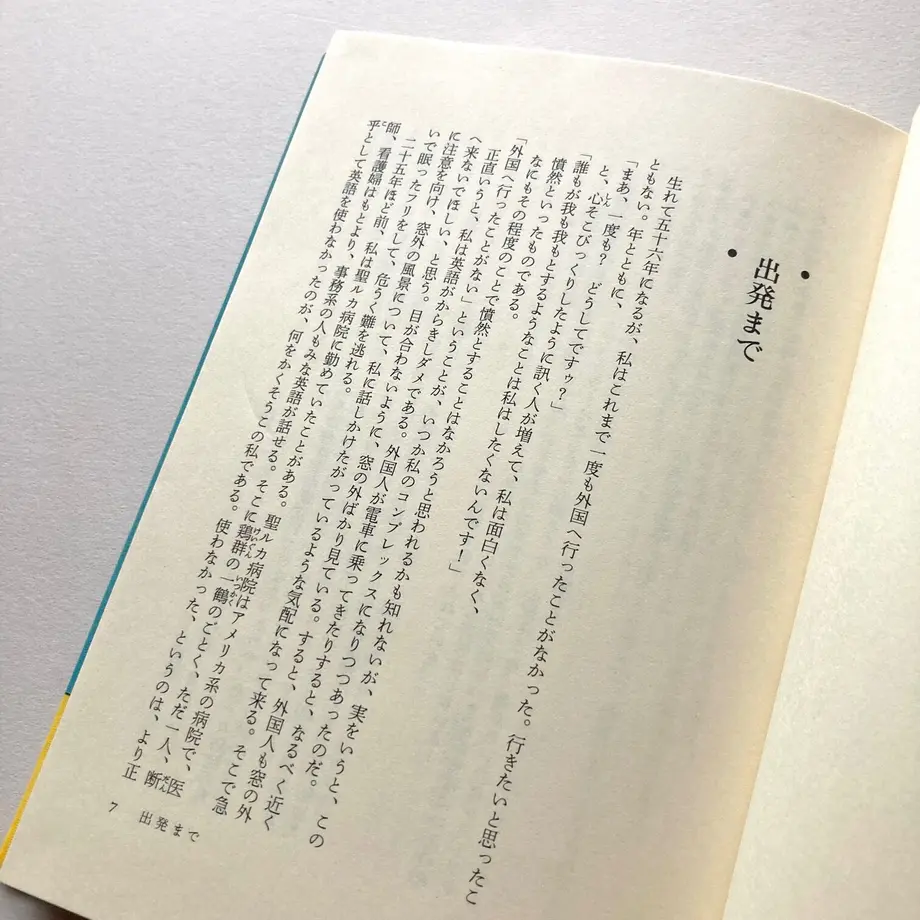 出発まで
生れて五十六年になるが、私はこれまで一度も外国へ行ったことがなかった。行きたいと思ったこ
ともない。年とともに、
「まあ、一度も? どうしてですゥ?」
と、心そこびっくりしたように訊く人が増えて、私は面白くなく、
「誰もが我も我もとするようなことは私はしたくないんです!」
憤然といったものである。
なにもその程度のことで憤然とすることはなかろうと思われるかも知れないが、実をいうと、この
「外国へ行ったことがない」ということが、いつか私のコンプレックスになりつつあったのだ。
正直いうと、私は英語がからきしダメである。外国人が電車に乗ってきたりすると、なるべく近く
へ来ないでほしい、と思う。目が合わないように、窓の外ばかり見ている。すると、外国人も窓の外
に注意を向け、窓外の風景について、私に話しかけたがっているような気配になって来る。そこで急
いで眠ったフリをして、危うく難を逃れる。
二十五年ほど前、私は聖ルカ病院に勤めていたことがある。聖ルカ病院はアメリカ系の病院で、医
師、看護婦はもとより、事務系の人もみな英語が話せる。そこに鶏群の一鶴のごとく、ただ一人、断
乎として英語を使わなかったのが、何をかくそうこの私である。使わなかった、というのは、より正
7 出発まで